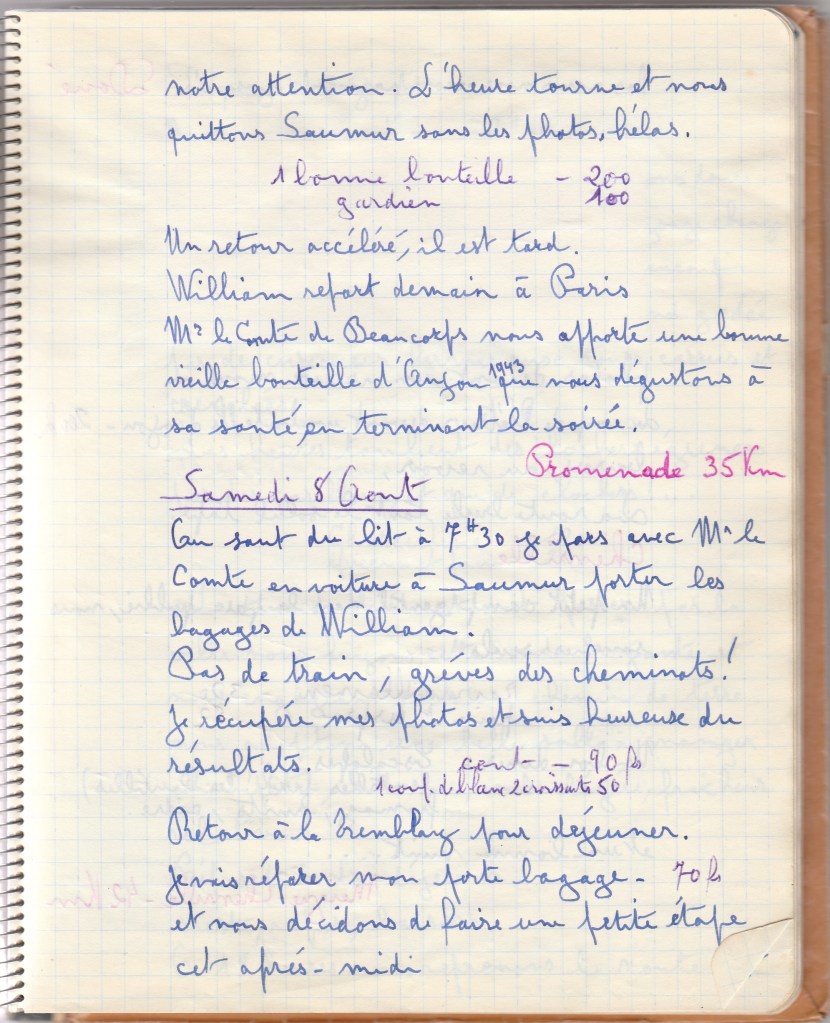 notre attention. L'heure tourne et nous
quittons Saumur sans les photos, hélas.
1 bonne bouteille - 200
gardien 100
Un retour accéléré, il est tard.
William repart demain à Paris
Mr le Comte de Beaucorps nous apporte une bonne
vieille bouteille d'Anjou 1943 que nous dégustons à
sa santé en terminant la soirée.
Promenade 35 Km
Samedi 8 Aout
Au saut du lit à 7H30 je pars avec Mr le
Comte en voiture à Saumur porter les
bagages de William.
Pas de train, gréves des cheminots!
Je récupére mes photos et suis heureuse du
résultats. cout - 90 fs
1 coup de blanc 2 croissants 50
Retour à la Tremblay pour déjeuner.
Je vais réparer mon porte bagage - 70 fs
et nous décidons de faire une petite étape
cet aprés-midi